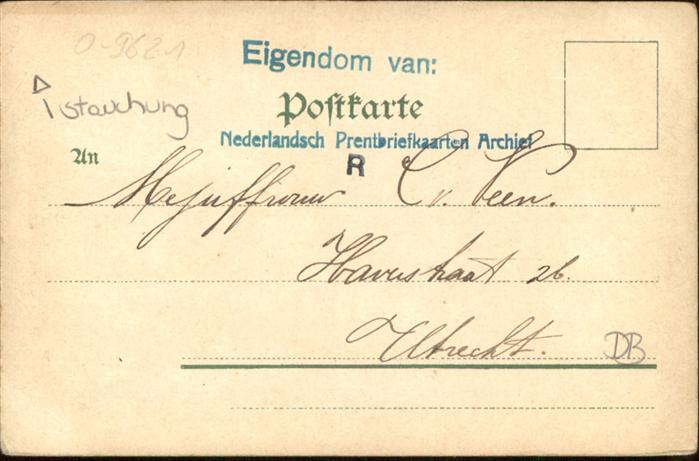 0-962-1
Eigendom van:
1 stauchung
Poſtkarte
Nederlandsch Prentbriefkaarten Archief
R
An
Mejuffrouw C v. Veen.
Havestraat 26.
Utrecht.
DB